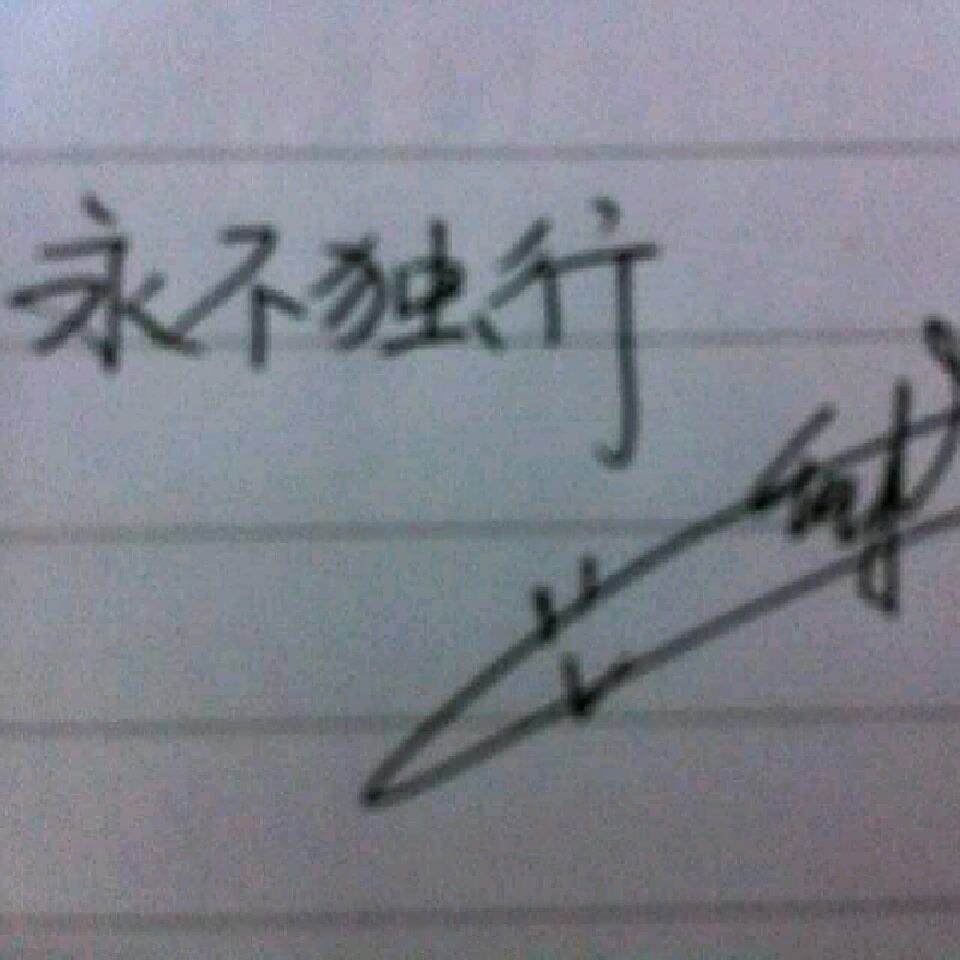 永不独行